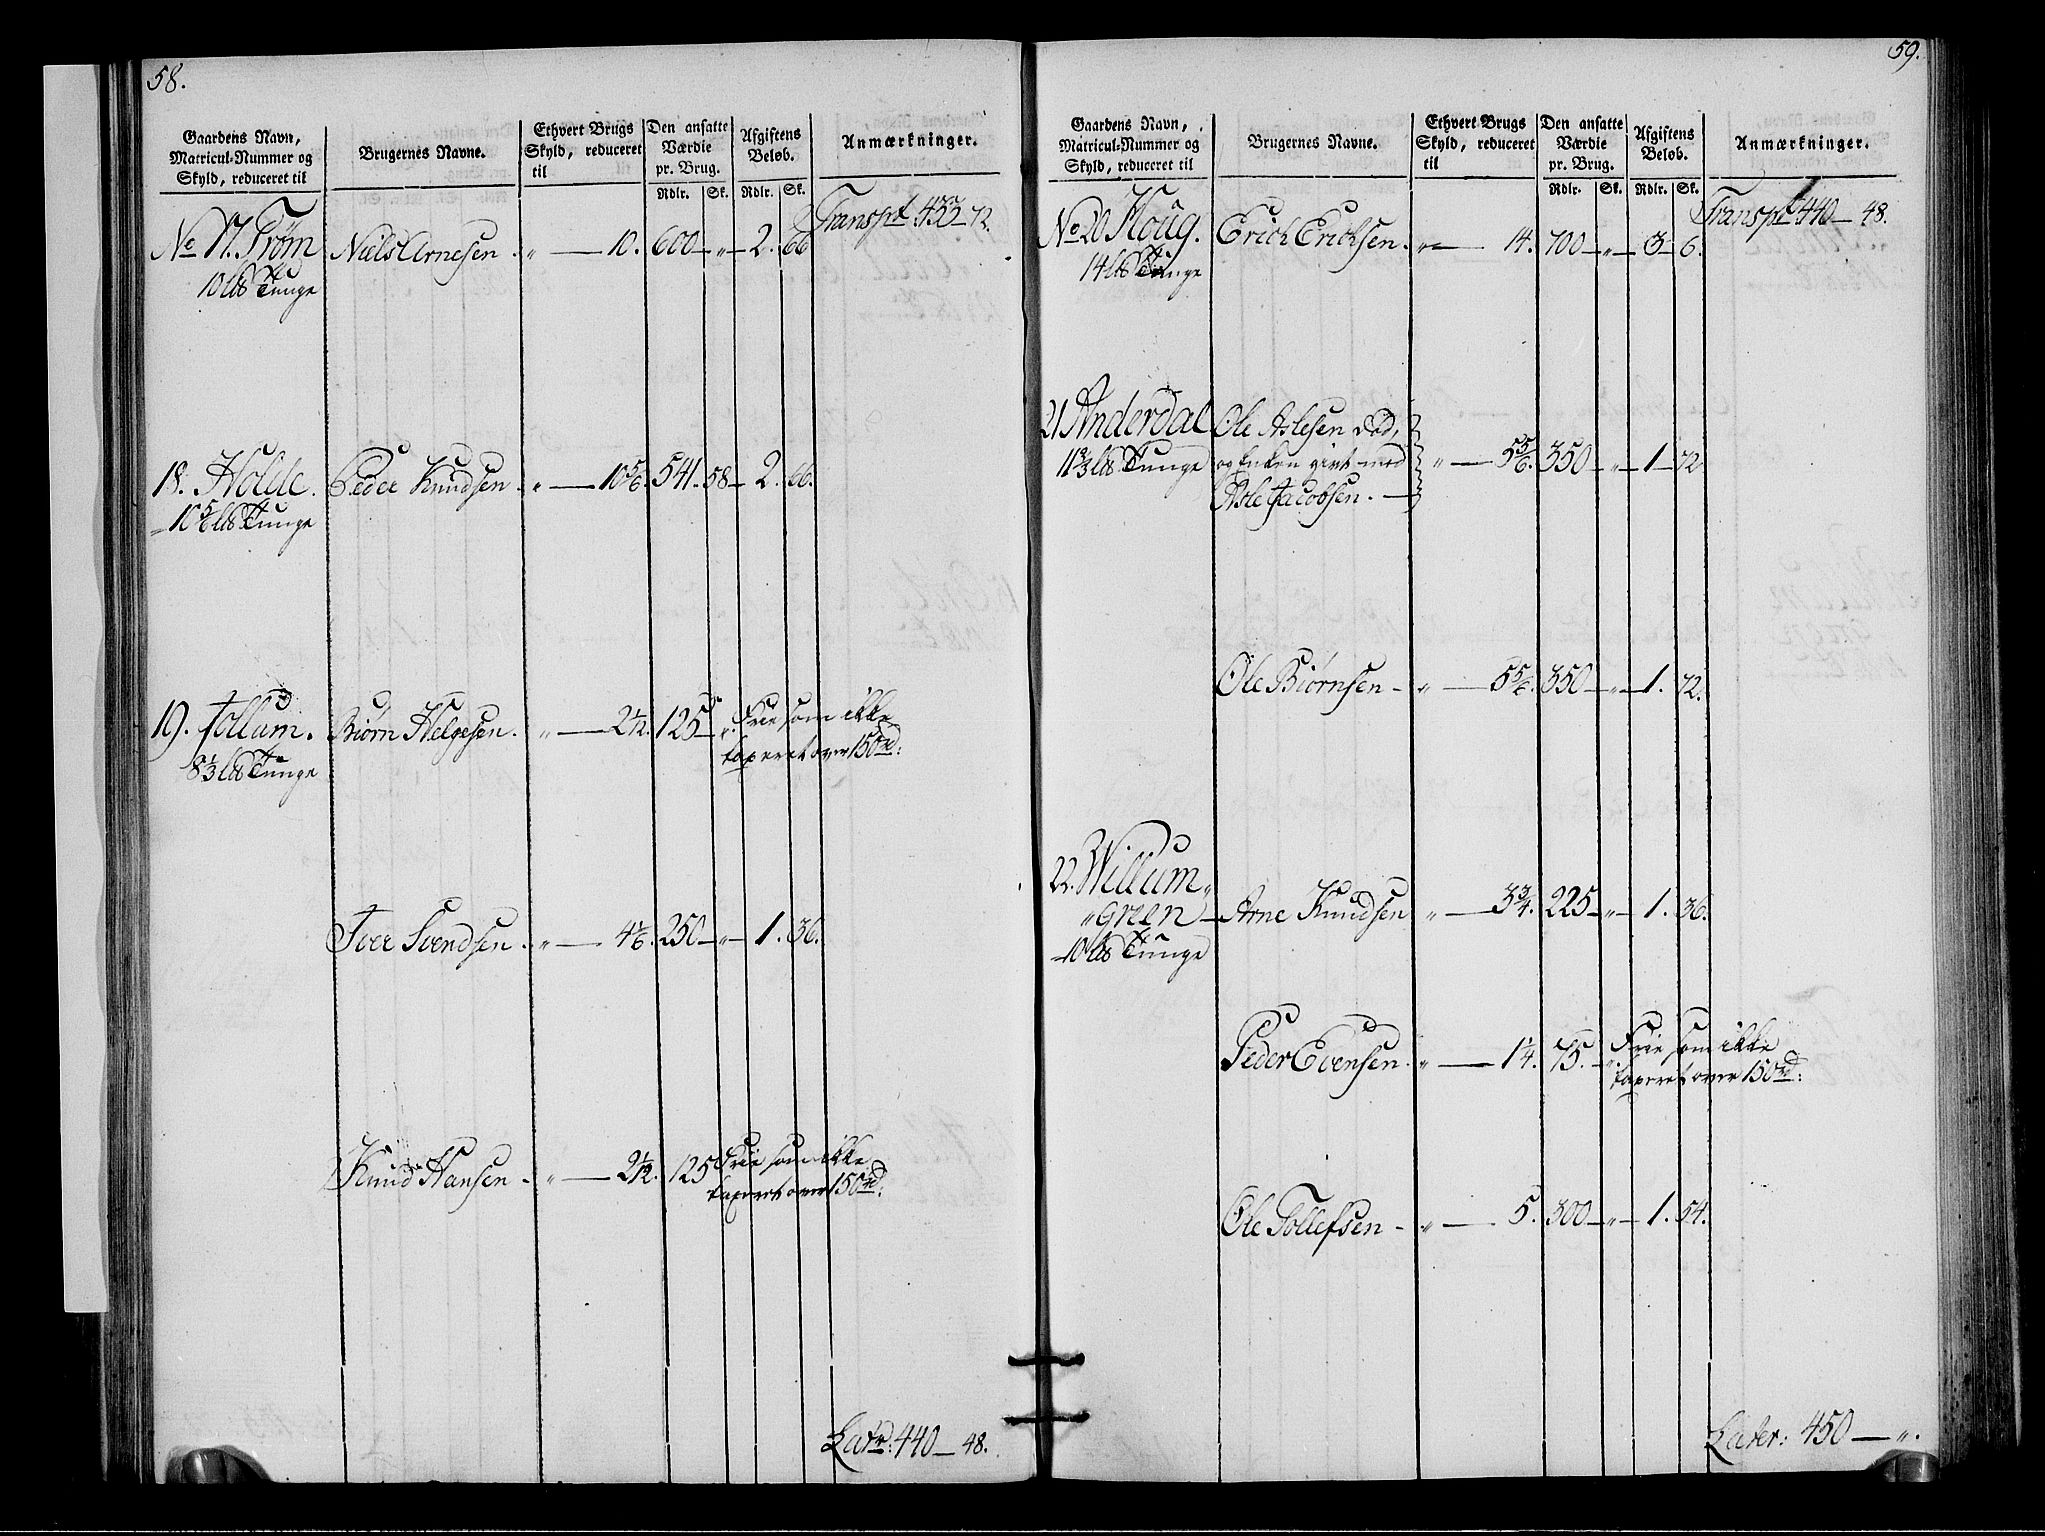 58.
Gaardens Navn, Matricul-Nummer og Skyld, reduceret til
Brugernes Navne.
Ethvert Brugs Skyld, reduceret til
Den ansatte Værdie pr. Brug.
Afgiftens Beløb.
Anmærkninger.
Rdlr. Sk. Rdlr. Sk.
Transpt 433 72.
No 17. Trøm Niels Arnesen . " — 10. 600 — " — 2. 66
10 Lb Tunge
18. Holde. Peder Knudsen . " — 10 5/6. 541. 58 — 2. 66.
10 5/6 Lb Tunge
19. Jollum. Biørn Helgesen. " — 2 1/12. 125 — ". Frie som ikke
8 1/3 Lb Tunge taxeret over 150 rd:
Iver Svendsen . " — 4 1/6. 250 — " — 1. 36.
Knud Hansen - " — 2 1/12. 125 Frie som ikke
taxeret over 150 rd:
Latr: 440 — 48.
59.
Gaardens Navn, Matricul-Nummer og Skyld, reduceret til
Brugernes Navne.
Ethvert Brugs Skyld, reduceret til
Den ansatte Værdie pr. Brug.
Afgiftens Beløb.
Anmærkninger.
Rdlr. Sk. Rdlr. Sk.
Transpt 440 — 48.
No 20 Houg. Erich Erichsen. " — 14. 700 — " — 3 — 6.
14 Lb Tunge
21 Anderdal Ole Aslesen død,
11 2/3 Lb Tunge og Enken givt med " — 5 5/6. 350 — " — 1 — 72
Asle Jacobsen. —
Ole Biørnsen - " — 5 5/6. 350 — " — 1. 72.
22. Willum"
"Green — Arne Knudsen " — 3 3/4. 225 — " — 1. 36.
10 Lb Tunge
Peder Evensen. " — 1 1/4. 75. — ". Frie som ikke
taxeret over 150 rd:
Ole Tollefsen - " — 5. 300 — " — 1. 54.
Later: 450 — ".